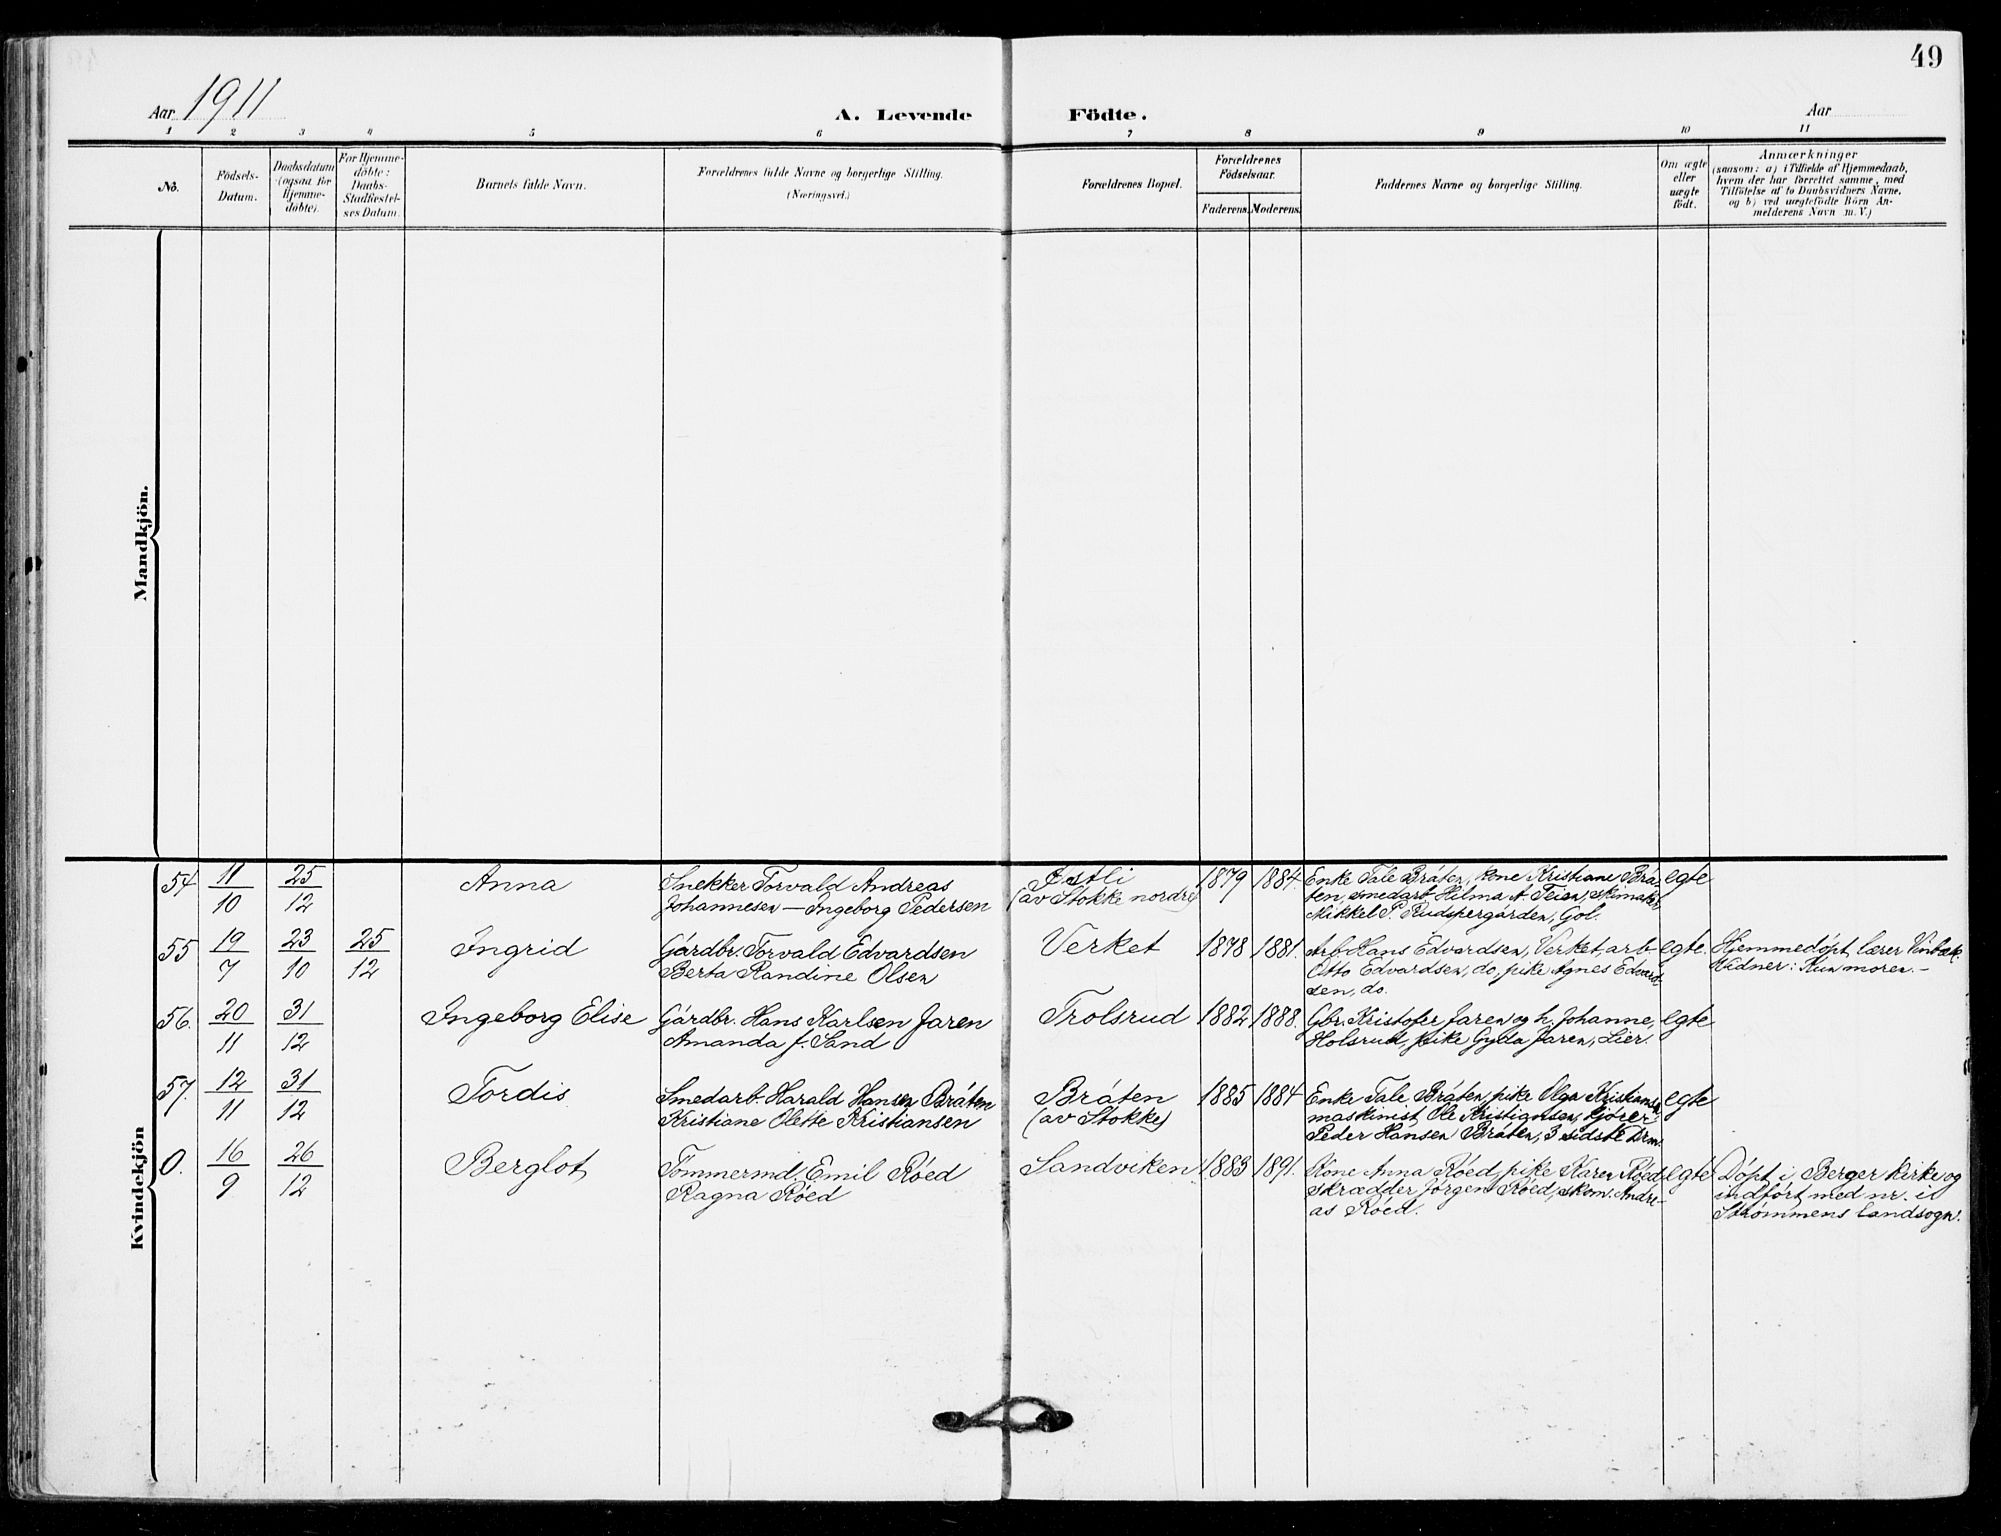 49
Aar 1911
A. Levende Födte.
Aar
1 2 3 4 5 6 7 8 9 10 11
No.
Födsels-
Datum.
Daabsdatum
(ogsaa for
Hjemme-
döbte).
For Hjemme-
döbte:
Daabs-
Stadfæstel-
ses Datum.
Barnets fulde Navn.
Forældrenes fulde Navne og borgerlige Stilling.
(Næringsvei.)
Forældrenes Bopæl.
Forældrenes
Födselsaar.
Faderens. Moderens.
Faddernes Navne og borgerlige Stilling.
Om ægte
eller
uægte
födt.
Anmærkninger
(saasom: a) i Tilfælde af Hjemmedaab,
hvem der har forrettet samme, med
Tilföielse af to Daabsvidners Navne,
og b) ved uægtefödte Börn An-
melderens Navn m. V.)
Mandkjön.
Kvindekjön
54 11/10 25/12 Anna
Snekker Torvald Andreas
Johannesen — Ingeborg Pedersen
Østli
(av Stokke nordre)
1879 1884.
Enke Tale Bråten, kone Kristiane Brå-
ten, smedarb. Hilma A. Teien, skomaker
Mikkel P. Rudspergården, Gol.
egte
55 19/7 23/10 25/12 Ingrid
Gårdbr. Torvald Edvardsen
Berta Randine Olsen
Verket
1878 1881.
Arb. Hans Edvardsen, Verket, arb.
Otto Edvardsen, do, pike Agnes Edvard-
sen, do.
egte.
Hjemmedøpt, lærer Vinbæk.
Vidner: Kun moren.-
56. 20/11 31/12 Ingeborg Elise
Gårdbr. Hans Karlsen Jaren
Amanda J. Sand
Trolsrud
1882 1888.
Gbr. Kristofer Jaren og h. Johanne,
Holsrud, pike Gyda Jaren, Lier.
egte
57. 12/11 31/12 Tordis
Smedarb. Harald Hansen Bråten
Kristiane Olette Kristiansen
Bråten
(av Stokke)
1885 1884
Enke Tale Bråten, pike Olga Kristiansen
maskinist Ole Kristiansen, kjører
Peder Hansen Bråten, 3 sidste Drm.
egte
0. 16/9 26/12 Berglot
Tömmermd. Emil Røed
Ragna Røed
Sandviken
1883 1891.
Kone Anna Røed, pike Karen Røed
skrædder Jørgen Røed, skom. Andre-
as Røed.
egte
Døpt i Berger kirke og
indført med nr. i
Strømmens landsogn.